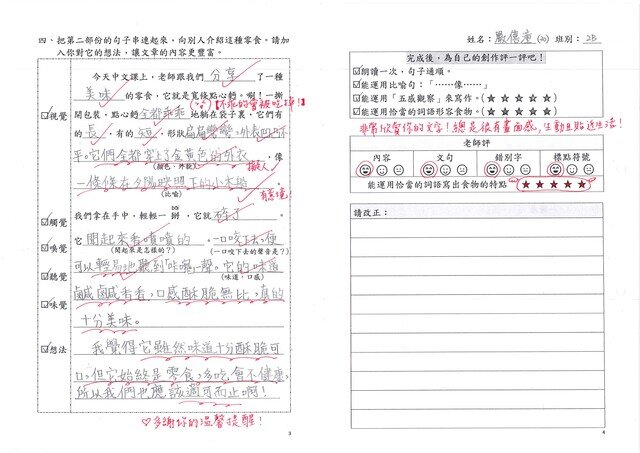 四、把第二部份的句子串連起來，向別人介紹這種零食。請加
入你對它的想法，讓文章的內容更豐富。
今天中文課上，老師跟我們分享了一種
美味的零食，它就是寬條點心麪。唰！一撕
開包裝，點心麪全都乖乖地躺在袋子裏，它們有
(^ ^) 不乖的會被吃掉！
視覺
的長，有的短，形狀扁扁彎彎，外表凹凸不
平。它們全都穿上了金黃色的外衣，像
(顏色、外貌) 擬人
一條條在夕陽映照下的小木排
(比喻) 有意境
觸覺 我們拿在手中，輕輕一掰，它就碎了。
嗅覺 它聞起來香噴噴的。一口咬下去，便
(聞起來是怎樣的？) (一口咬下去的聲音是？)
聽覺 可以輕易地聽到「咔嚓」一聲。它的味道
(味道、口感)
味覺 鹹鹹香香，口感酥脆無比，真的
十分美味。
想法 我覺得它雖然味道十分酥脆可
口，但它始終是零食，多吃會不健康，
所以我們也應該適可而止啊！
♡多謝你的溫馨提醒！
3
姓名： (20) 班別：2B
完成後，為自己的創作評一評吧！
朗讀一次，句子通順。
能運用比喻句：「……像……」
能運用「五感觀察」來寫作。(★★★★★)
能運用恰當的詞語形容食物。(★★★★★)
非常欣賞你的文字！總是很有畫面感，生動且貼近生活！
老師評
內容 文句 錯別字 標點符號
能運用恰當的詞語寫出食物的特點 (★★★★★)
請改正：
4